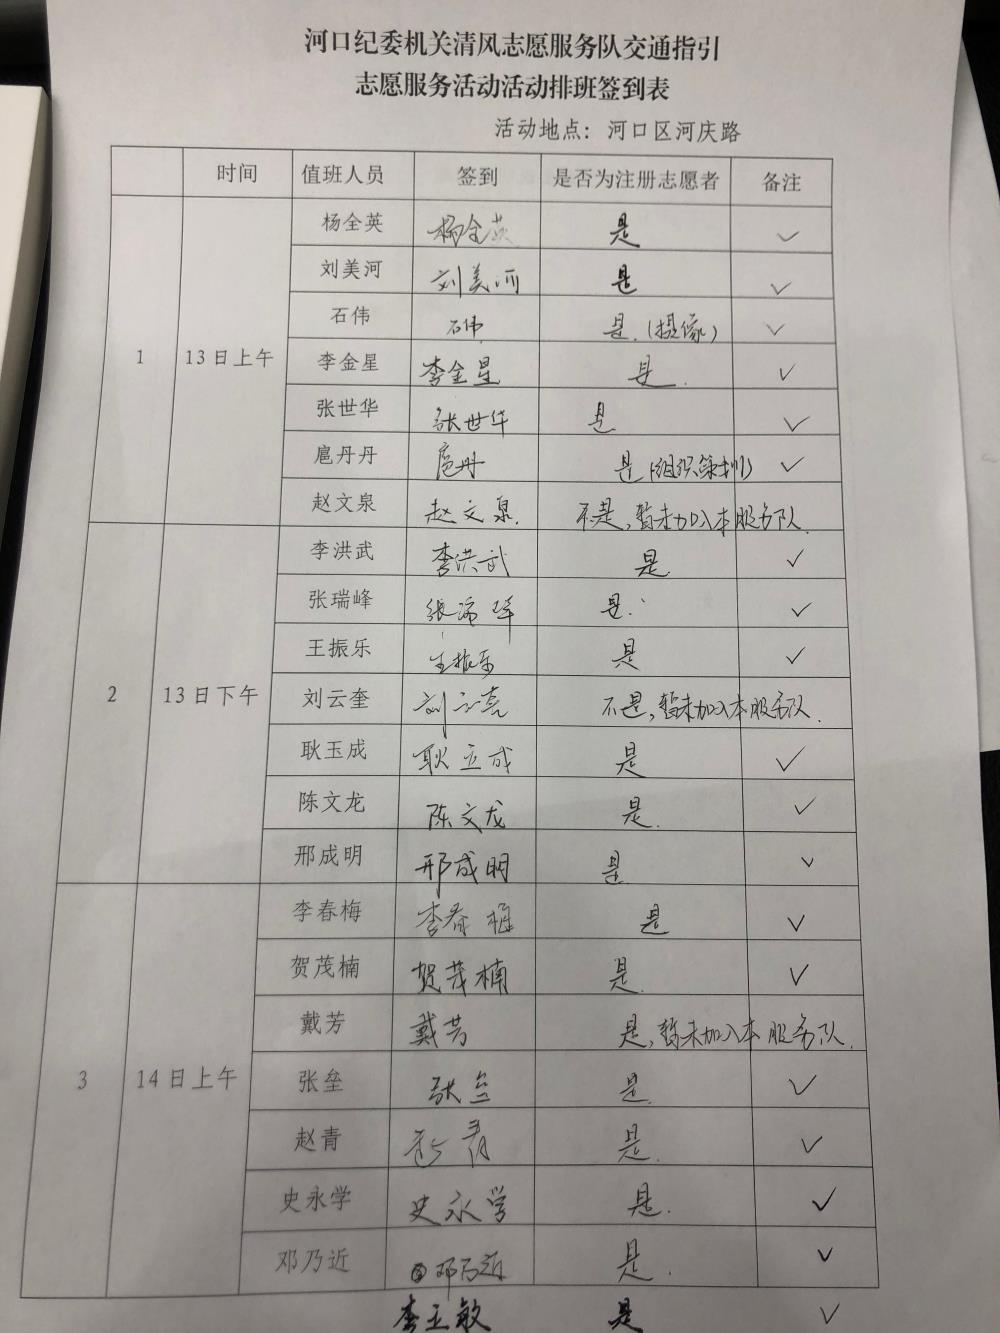 河口纪委机关清风志愿服务队交通指引
志愿服务活动活动排班签到表
活动地点：河口区河庆路
时间 值班人员 签到 是否为注册志愿者 备注
杨全英 杨全英 是 ✓
刘美河 刘美河 是 ✓
石伟 石伟 是.(摄像) ✓
1 13日上午 李金星 李金星 是. ✓
张世华 张世华 是 ✓
扈丹丹 扈丹 是(组织策划) ✓
赵文泉 赵文泉. 不是,暂未加入本服务队.
李洪武 李洪武 是 ✓
张瑞峰 张瑞峰 是. ✓
王振乐 王振乐 是 ✓
2 13日下午 刘云奎 刘云奎 不是,暂未加入本服务队.
耿玉成 耿玉成 是 ✓
陈文龙 陈文龙 是. ✓
邢成明 邢成明 是. ✓
李春梅 李春梅 是 ✓
贺茂楠 贺茂楠 是. ✓
戴芳 戴芳 是,暂未加入本服务队.
3 14日上午 张垒 张垒 是. ✓
赵青 赵青 是. ✓
史永学 史永学 是. ✓
邓乃近 邓乃近 是. ✓
李玉敏 是 ✓